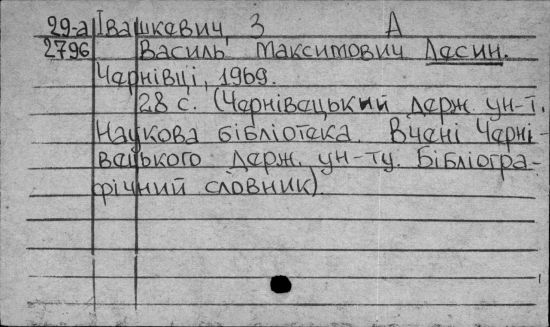 29-а Івашкевич, З А
2796 Василь Максимович Лесин.
Чернівці, 1969.
28 с. (Чернівецький держ. ун-т.
Наукова бібліотека. Вчені Черні-
вецького держ. ун-ту. Бібліогра-
фічний словник).